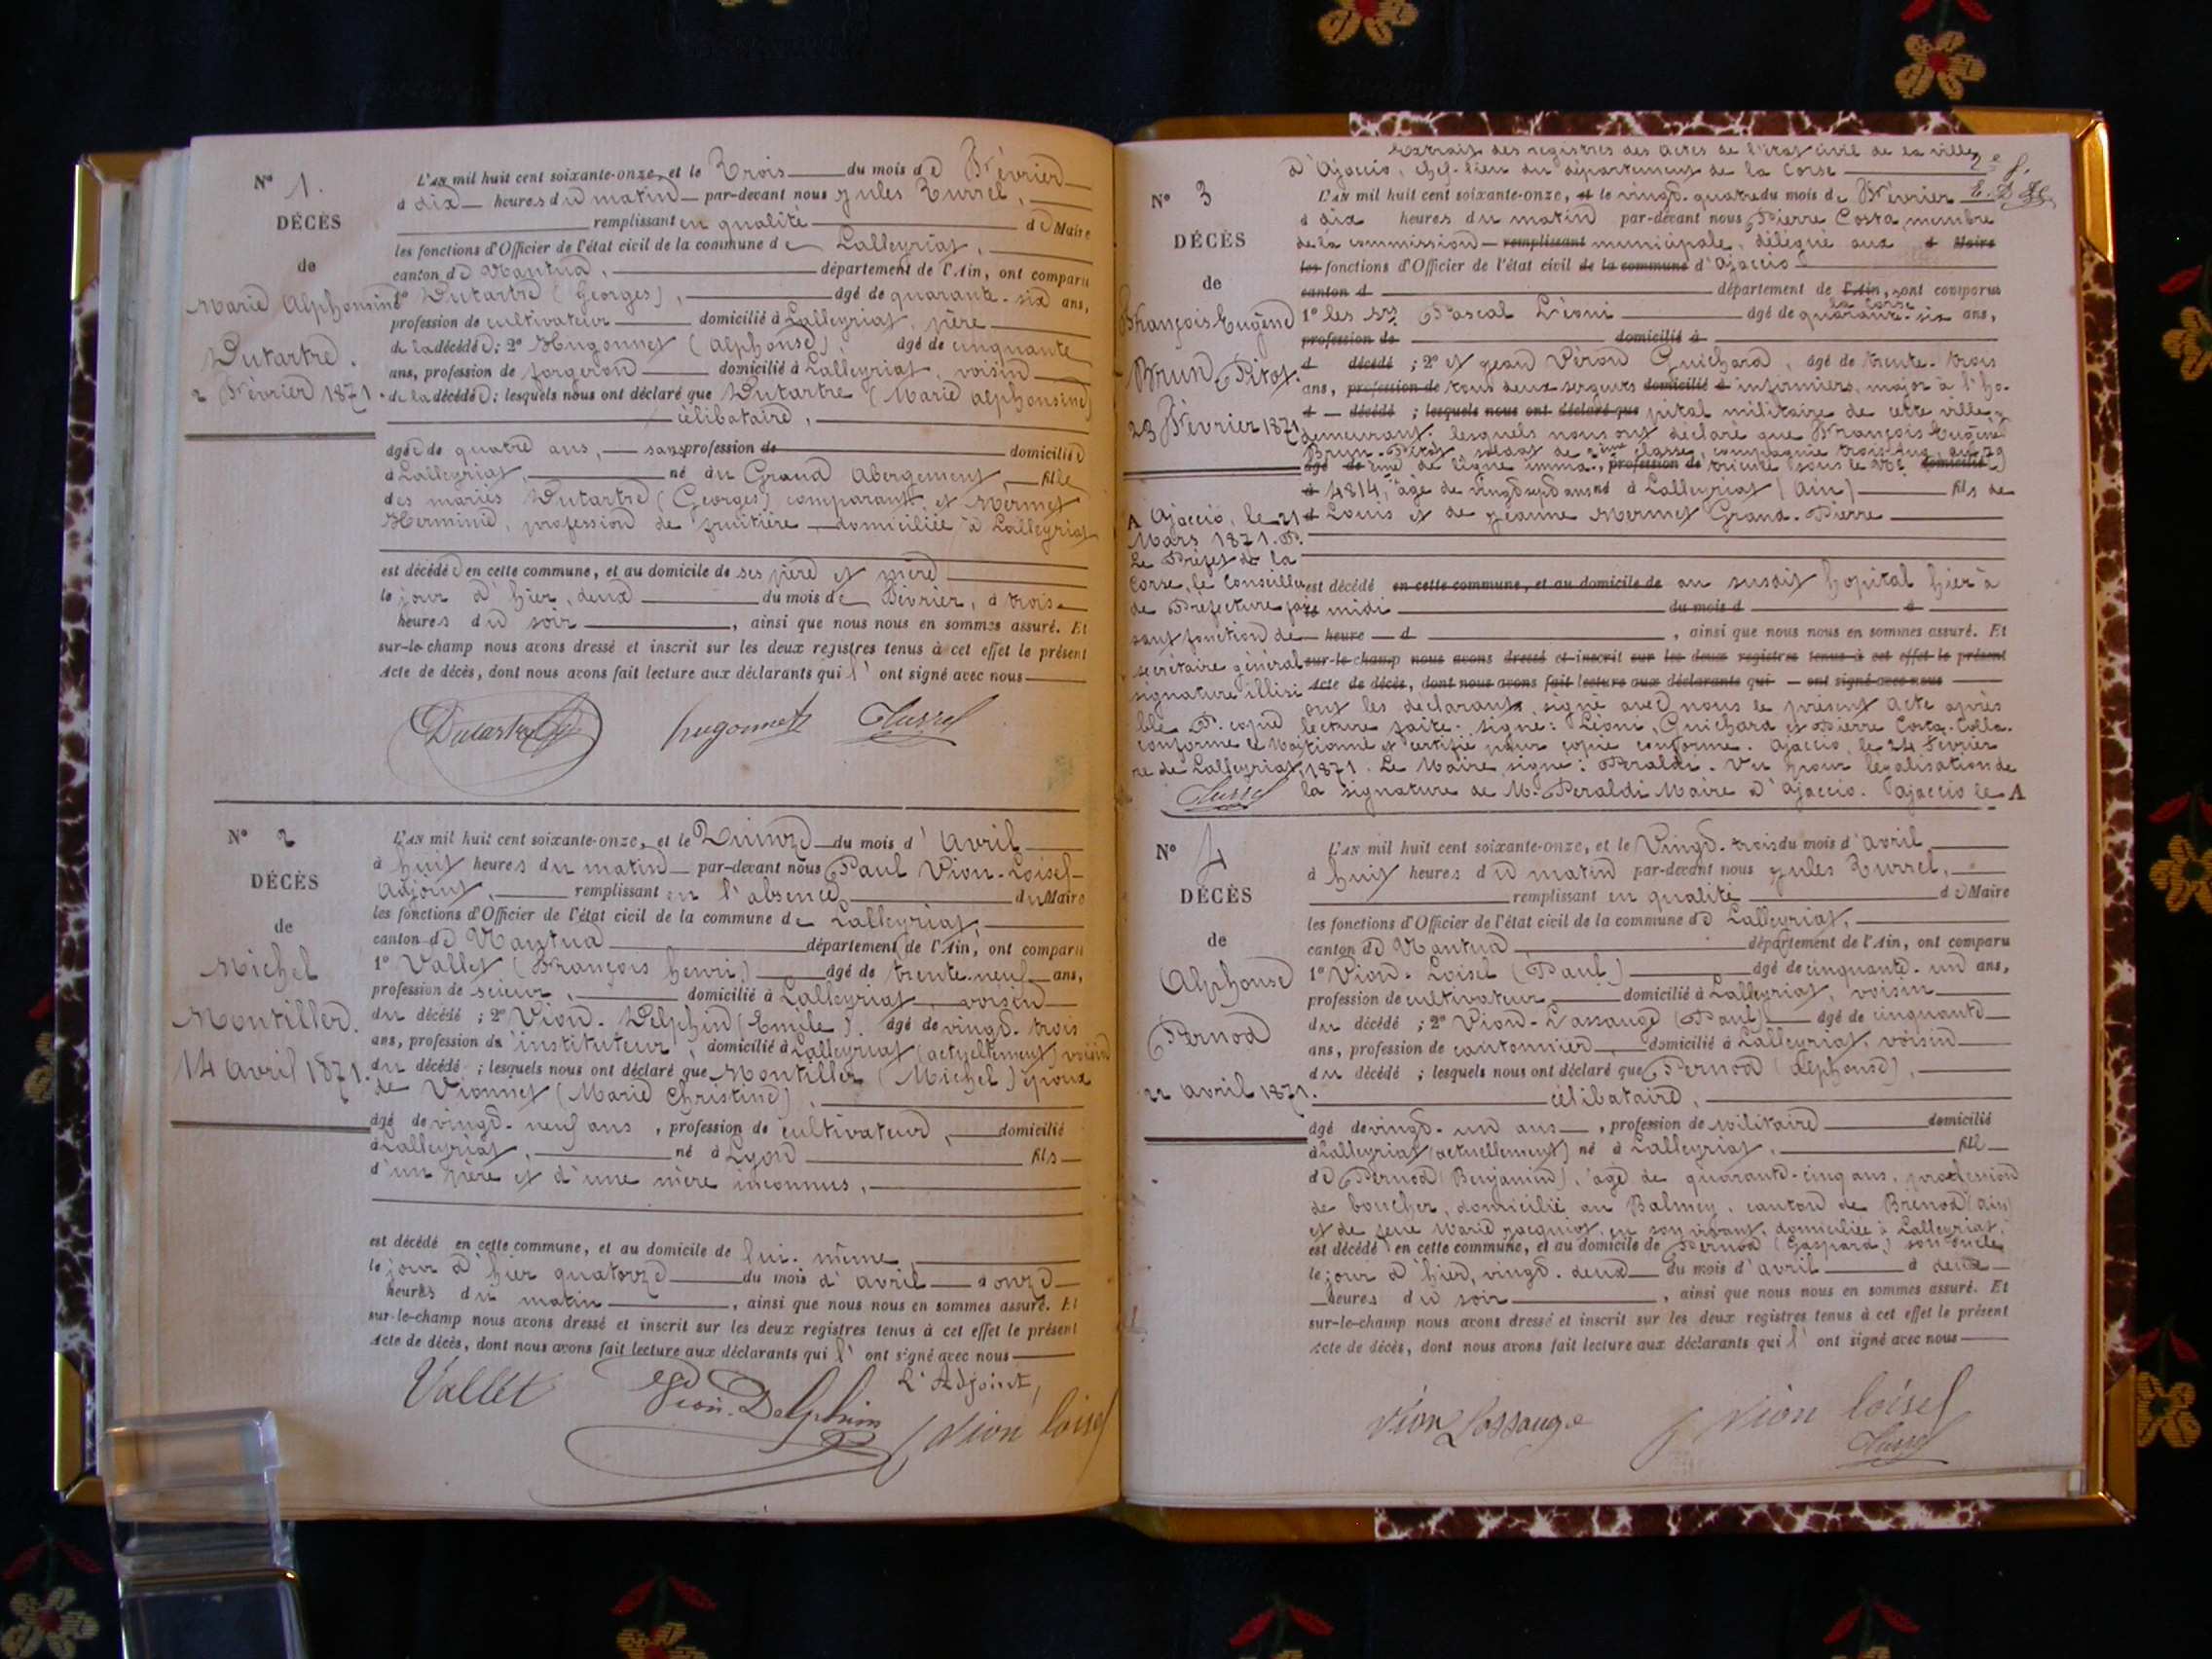 N° 1.
DÉCÈS
de
Marie Alphonsine
Dutartre.
2 Février 1871.
L'AN mil huit cent soixante-onze, et le Trois du mois de Février
à dix heures du matin par-devant nous Jules Turrel,
remplissant en qualité de Maire
les fonctions d'Officier de l'état civil de la commune de Lalleyriat,
canton de Nantua, département de l'Ain, ont comparu
1° Dutartre (Georges), âgé de quarante-six ans,
profession de cultivateur domicilié à Lalleyriat, père
de la décédée; 2° Hugonnet (Alphonse), âgé de cinquante
ans, profession de forgeron domicilié à Lalleyriat, voisin
de la décédée; lesquels nous ont déclaré que Dutartre (Marie Alphonsine)
célibataire,
âgée de quatre ans, sans profession de domiciliée
à Lalleyriat, né au Grand Abergement, fille
des mariés Dutartre (Georges) comparant et Mermet
Herminie, profession de fruitière domiciliée à Lalleyriat
est décédée en cette commune, et au domicile de ses père et mère
le jour d'hier, deux du mois de Février, à trois
heures du soir, ainsi que nous nous en sommes assuré. Et
sur-le-champ nous avons dressé et inscrit sur les deux registres tenus à cet effet le présent
Acte de décès, dont nous avons fait lecture aux déclarants qui l'ont signé avec nous
Dutartre hugonnet Turrel
N° 2
DÉCÈS
de
Michel
Montiller.
14 avril 1871.
L'AN mil huit cent soixante-onze, et le Quinze du mois d'avril
à huit heures du matin par-devant nous Paul Vion-Loisel
Adjoint, remplissant en l'absence du Maire
les fonctions d'Officier de l'état civil de la commune de Lalleyriat,
canton de Nantua département de l'Ain, ont comparu
1° Vallet (François henri) âgé de trente-neuf ans,
profession de scieur, domicilié à Lalleyriat, voisin
du décédé; 2° Vion-Delphin (Emile), âgé de vingt-trois
ans, profession de instituteur, domicilié à Lalleyriat (actuellement) voisin
du décédé; lesquels nous ont déclaré que Montiller (Michel) époux
de Vionnet (Marie Christine),
âgé de vingt-neuf ans, profession de cultivateur, domicilié
à Lalleyriat, né à Lyon fils
d'un père et d'une mère inconnus,
est décédé en cette commune, et au domicile de lui-même,
le jour d'hier quatorze du mois d'avril à onze
heures du matin, ainsi que nous nous en sommes assuré. Et
sur-le-champ nous avons dressé et inscrit sur les deux registres tenus à cet effet le présent
Acte de décès, dont nous avons fait lecture aux déclarants qui l'ont signé avec nous
L'Adjoint,
Vallet Vion-Delphin Vion loisel
Extrait des registres des actes de l'état civil de la ville
d'Ajaccio, chef-lieu du département de la Corse
N° 3
DÉCÈS
de
François Eugène
Brun-Pitot.
23 Février 1871
L'AN mil huit cent soixante-onze, et le vingt-quatre du mois de Février
à dix heures du matin par-devant nous Pierre Costa membre
de la commission remplissant municipale, délégué aux d Maire
les fonctions d'Officier de l'état civil de la commune d'Ajaccio
canton d département de l'Ain, sont comparus
la Corse
1° les srs Pascal Léoni âgé de quarante-six ans,
profession de domicilié à
d décédé; 2° et Jean Véron Guichard, âgé de trente-trois
ans, profession de tous deux sergents domicilié à infirmiers, major à l'ho-
d décédé; lesquels nous ont déclaré que pital militaire de cette ville y
demeurant. lesquels nous ont déclaré que François Eugène
Brun-Pitot, soldat de 2me classe, compagnie
âgé de de ligne profession de sous le No domicilié
à 4814, âgé de vingt-sept ans né à Lalleyriat (Ain) fils de
d Louis et de Jeanne Mermet Grand-Pierre
est décédé en cette commune, et au domicile de au susdit hopital hier à
midi du mois d à
heure d, ainsi que nous nous en sommes assuré. Et
sur-le-champ nous avons dressé et inscrit sur les deux registres tenus à cet effet le présent
Acte de décès, dont nous avons fait lecture aux déclarants qui ont signé avec nous
ont les déclarants signé avec nous le présent acte après
lecture faite. signé: Léoni, Guichard et Pierre Costa. Colla-
tionné et certifié pour copie conforme. Ajaccio, le 24 février
1871. Le Maire, signé: Peraldi. Vu pour légalisation de
la signature de M. Peraldi Maire d'Ajaccio. Ajaccio le A
A Ajaccio, le 21
Mars 1871. P.
Le Préfet de la
Corse, le Conseiller
de Préfecture fai-
sant fonction de
secrétaire général
signature illisi
ble P. copie
conforme le Mai
re de Lalleyriat,
Turrel
N° 4
DÉCÈS
de
Alphonse
Pernod
22 avril 1871.
L'AN mil huit cent soixante-onze, et le Vingt-trois du mois d'avril
à huit heures du matin par-devant nous Jules Turrel,
remplissant en qualité de Maire
les fonctions d'Officier de l'état civil de la commune de Lalleyriat,
canton de Nantua département de l'Ain, ont comparu
1° Vion-Loisel (Paul) âgé de cinquante-un ans,
profession de cultivateur domicilié à Lalleyriat, voisin
du décédé; 2° Vion-Lassauge (Paul) âgé de cinquante
ans, profession de cantonnier domicilié à Lalleyriat, voisin
du décédé; lesquels nous ont déclaré que Pernod (Alphonse),
célibataire,
âgé de vingt-un ans, profession de militaire domicilié
à Lalleyriat (actuellement) né à Lalleyriat, fils
de Pernod (Benjamin), âgé de quarante-cinq ans, profession
de boucher, domicilié au Balmey, canton de Brénod (Ain)
et de feue Marie Jacquiot, en son vivant, domiciliée à Lalleyriat,
est décédé en cette commune, et au domicile de Pernod (Gaspard) son oncle
le jour d'hier, vingt-deux du mois d'avril à deux
heures du soir, ainsi que nous nous en sommes assuré. Et
sur-le-champ nous avons dressé et inscrit sur les deux registres tenus à cet effet le présent
Acte de décès, dont nous avons fait lecture aux déclarants qui l'ont signé avec nous
Vion Lassauge Vion loisel
Turrel